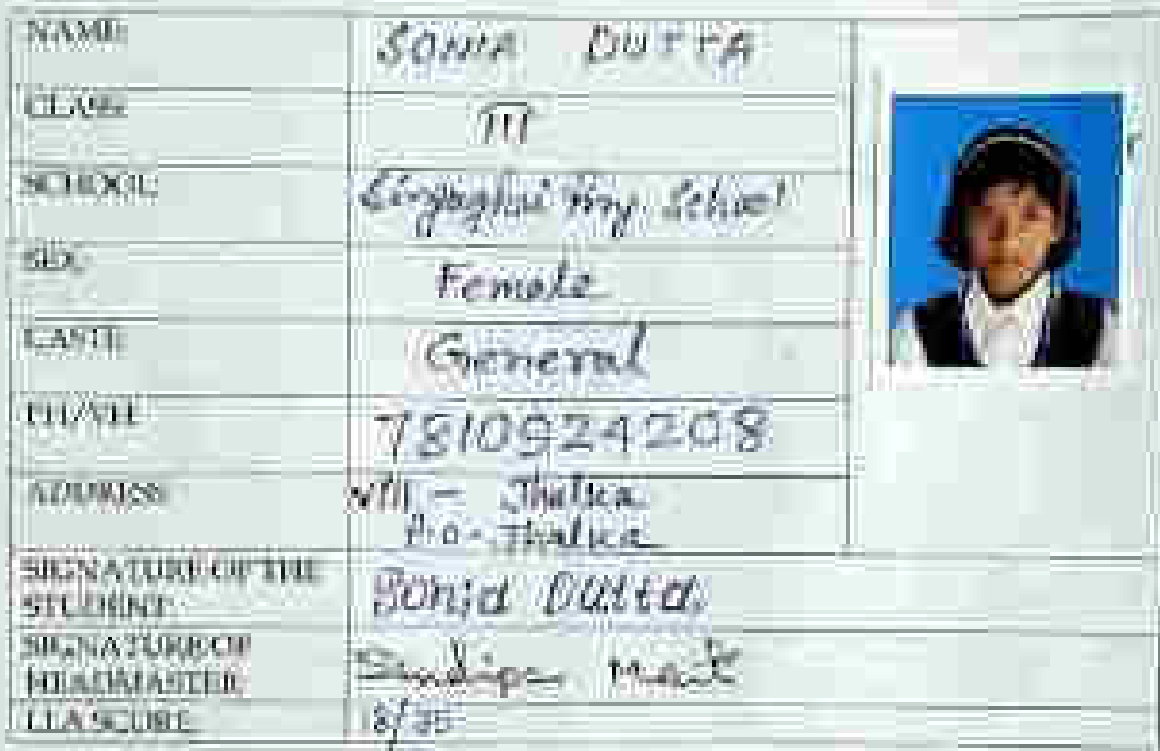 NAME: SONIA DUTTA
CLASS: III
SCHOOL: Pry. School
SEX: Female
CASTE: General
PH/WH: 7810924208
ADDRESS: Vill - Jhalka
P.O - Jhalka
SIGNATURE OF THE STUDENT: Sonia Dutta
SIGNATURE OF HEADMASTER:
LLA SCORE: